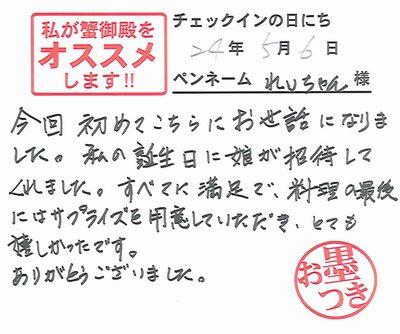 私が蟹御殿を
オススメ
します!!
チェックインの日にち
24年5月6日
ペンネーム れいちゃん 様
今回初めてこちらにお世話になりま
した。私の誕生日に娘が招待して
くれました。すべてに満足で、料理の最後
にはサプライズを用意していただき、とても
嬉しかったです。
ありがとうございました。
お墨
つき